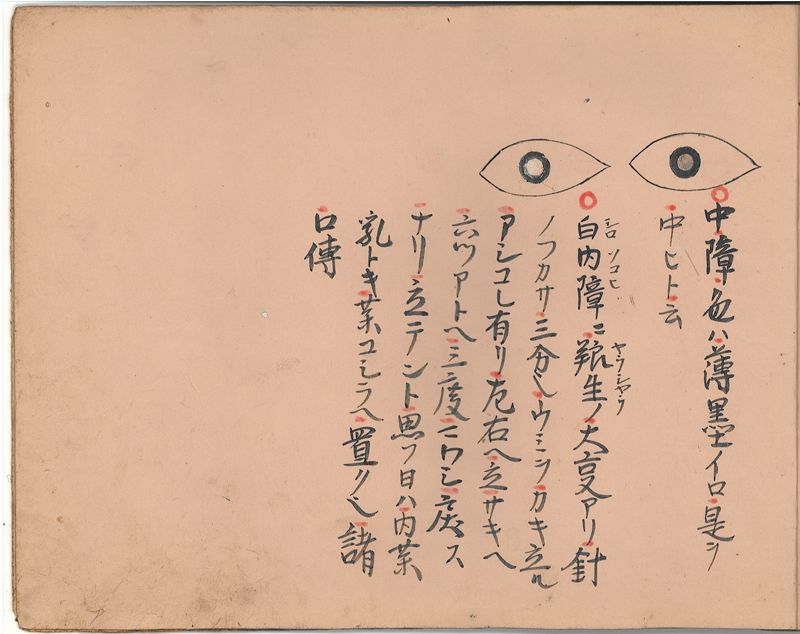 中障色ハ薄墨イロ是ヲ
中ヒト云
白内障ニ養生ノ大事アリ針
シロ ソコヒ ヤウシヤウ
ノフカサ三分也ウミンカキ立ル
アシコレ有リ左右ヘ立サキヘ
六ツアトヘ三度ニワシ戻ス
ナリ立テント思フ日ハ内薬
乳トキ薬コシラヘ置ク也諸
口傳